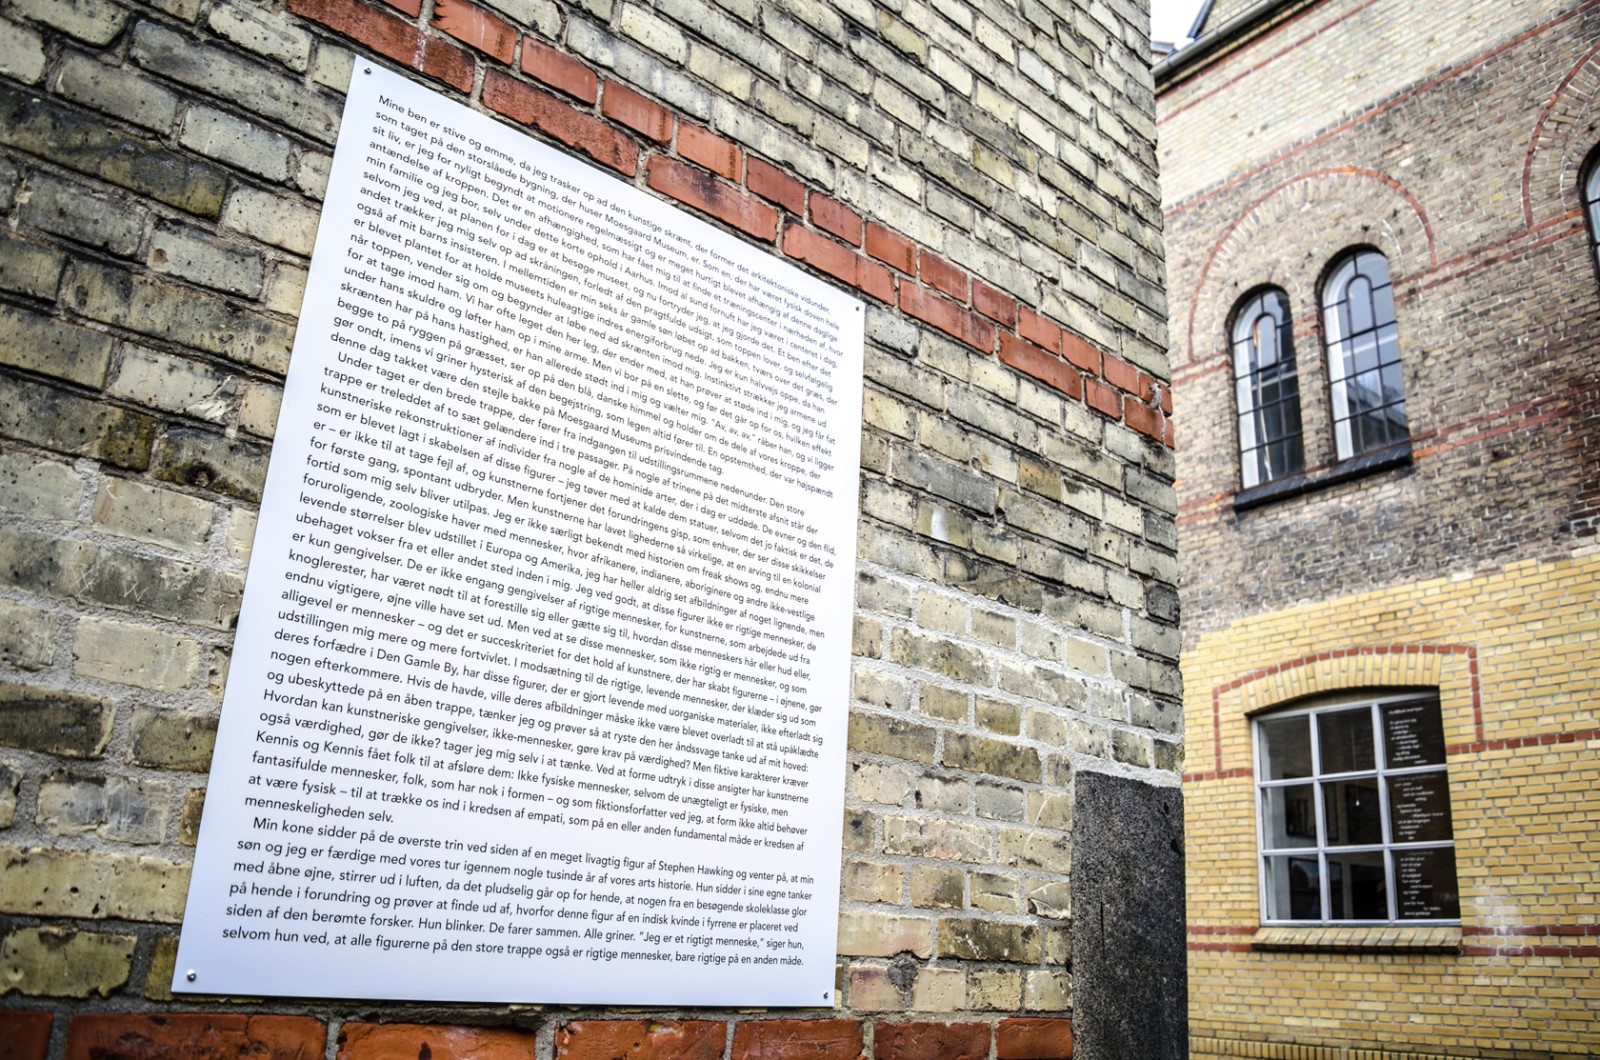 Mine ben er stive og ømme, da jeg trasker op ad den kunstige skrænt, der former det arkitektoniske vidunder,
som taget på den storslåede bygning, der huser Moesgaard Museum, er. Som en, der har været fysisk doven hele
sit liv, er jeg for nyligt begyndt at motionere regelmæssigt og er meget hurtigt blevet afhængig af denne daglige
antændelse af kroppen. Det er en afhængighed, som har fået mig til at finde et træningscenter i nærheden af, hvor
min familie og jeg bor, selv under dette korte ophold i Aarhus. Imod al sund fornuft har jeg været i centeret i dag,
selvom jeg ved, at planen for i dag er at besøge museet, og nu fortryder jeg, at jeg gjorde det. Et ben efter det
andet trækker jeg mig selv op ad skråningen, forledt af den pragtfulde udsigt, som toppen lover, og selvfølgelig
også af mit barns insisteren. I mellemtiden er min seks år gamle søn løbet op ad bakken, tværs over det græs, der
er blevet plantet for at holde museets huleagtige indres energiforbrug nede. Jeg er kun halvvejs oppe, da han
når toppen, vender sig om og begynder at løbe ned ad skrænten imod mig. Instinktivt strækker jeg armene ud
for at tage imod ham. Vi har ofte leget den her leg, der ender med, at han prøver at støde ind i mig, og jeg får fat
under hans skuldre og løfter ham op i mine arme. Men vi bor på en slette, og før det går op for os, hvilken effekt
skrænten har på hans hastighed, er han allerede stødt ind i mig og vælter mig. "Av, av, av," råber han, og vi ligger
begge to på ryggen på græsset, ser op på den blå, danske himmel og holder om de dele af vores kroppe, der
gør ondt, imens vi griner hysterisk af den begejstring, som legen altid fører til. En opstemthed, der var højspændt
denne dag takket være den stejle bakke på Moesgaard Museums prisvindende tag.
Under taget er den brede trappe, der fører fra indgangen til udstillingsrummene nedenunder. Den store
trappe er treleddet af to sæt gelændere ind i tre passager. På nogle af trinene på det midterste afsnit står der
kunstneriske rekonstruktioner af individer fra nogle af de hominide arter, der i dag er uddøde. De evner og den flid,
som er blevet lagt i skabelsen af disse figurer – jeg tøver med at kalde dem statuer, selvom det jo faktisk er det, de
er – er ikke til at tage fejl af, og kunstnerne fortjener det forundringens gisp, som enhver, der ser disse skikkelser
for første gang, spontant udbryder. Men kunstnerne har lavet lighederne så virkelige, at en arving til en kolonial
fortid som mig selv bliver utilpas. Jeg er ikke særligt bekendt med historien om freak shows og, endnu mere
foruroligende, zoologiske haver med mennesker, hvor afrikanere, indianere, aboriginere og andre ikke-vestlige
levende størrelser blev udstillet i Europa og Amerika, jeg har heller aldrig set afbildninger af noget lignende, men
ubehaget vokser fra et eller andet sted inden i mig. Jeg ved godt, at disse figurer ikke er rigtige mennesker, de
er kun gengivelser. De er ikke engang gengivelser af rigtige mennesker, for kunstnerne, som arbejdede ud fra
knoglerester, har været nødt til at forestille sig eller gætte sig til, hvordan disse menneskers hår eller hud eller,
endnu vigtigere, øjne ville have set ud. Men ved at se disse mennesker, som ikke rigtig er mennesker, og som
alligevel er mennesker – og det er succeskriteriet for det hold af kunstnere, der har skabt figurerne – i øjnene, gør
udstillingen mig mere og mere fortvivlet. I modsætning til de rigtige, levende mennesker, der klæder sig ud som
deres forfædre i Den Gamle By, har disse figurer, der er gjort levende med uorganiske materialer, ikke efterladt sig
nogen efterkommere. Hvis de havde, ville deres afbildninger måske ikke være blevet overladt til at stå upåklædte
og ubeskyttede på en åben trappe, tænker jeg og prøver så at ryste den her åndssvage tanke ud af mit hoved:
Hvordan kan kunstneriske gengivelser, ikke-mennesker, gøre krav på værdighed? Men fiktive karakterer kræver
også værdighed, gør de ikke? tager jeg mig selv i at tænke. Ved at forme udtryk i disse ansigter har kunstnerne
Kennis og Kennis fået folk til at afsløre dem: Ikke fysiske mennesker, selvom de unægteligt er fysiske, men
fantasifulde mennesker, folk, som har nok i formen – og som fiktionsforfatter ved jeg, at form ikke altid behøver
at være fysisk – til at trække os ind i kredsen af empati, som på en eller anden fundamental måde er kredsen af
menneskeligheden selv.
Min kone sidder på de øverste trin ved siden af en meget livagtig figur af Stephen Hawking og venter på, at min
søn og jeg er færdige med vores tur igennem nogle tusinde år af vores arts historie. Hun sidder i sine egne tanker
med åbne øjne, stirrer ud i luften, da det pludselig går op for hende, at nogen fra en besøgende skoleklasse glor
på hende i forundring og prøver at finde ud af, hvorfor denne figur af en indisk kvinde i fyrrene er placeret ved
siden af den berømte forsker. Hun blinker. De farer sammen. Alle griner. "Jeg er et rigtigt menneske," siger hun,
selvom hun ved, at alle figurerne på den store trappe også er rigtige mennesker, bare rigtige på en anden måde.